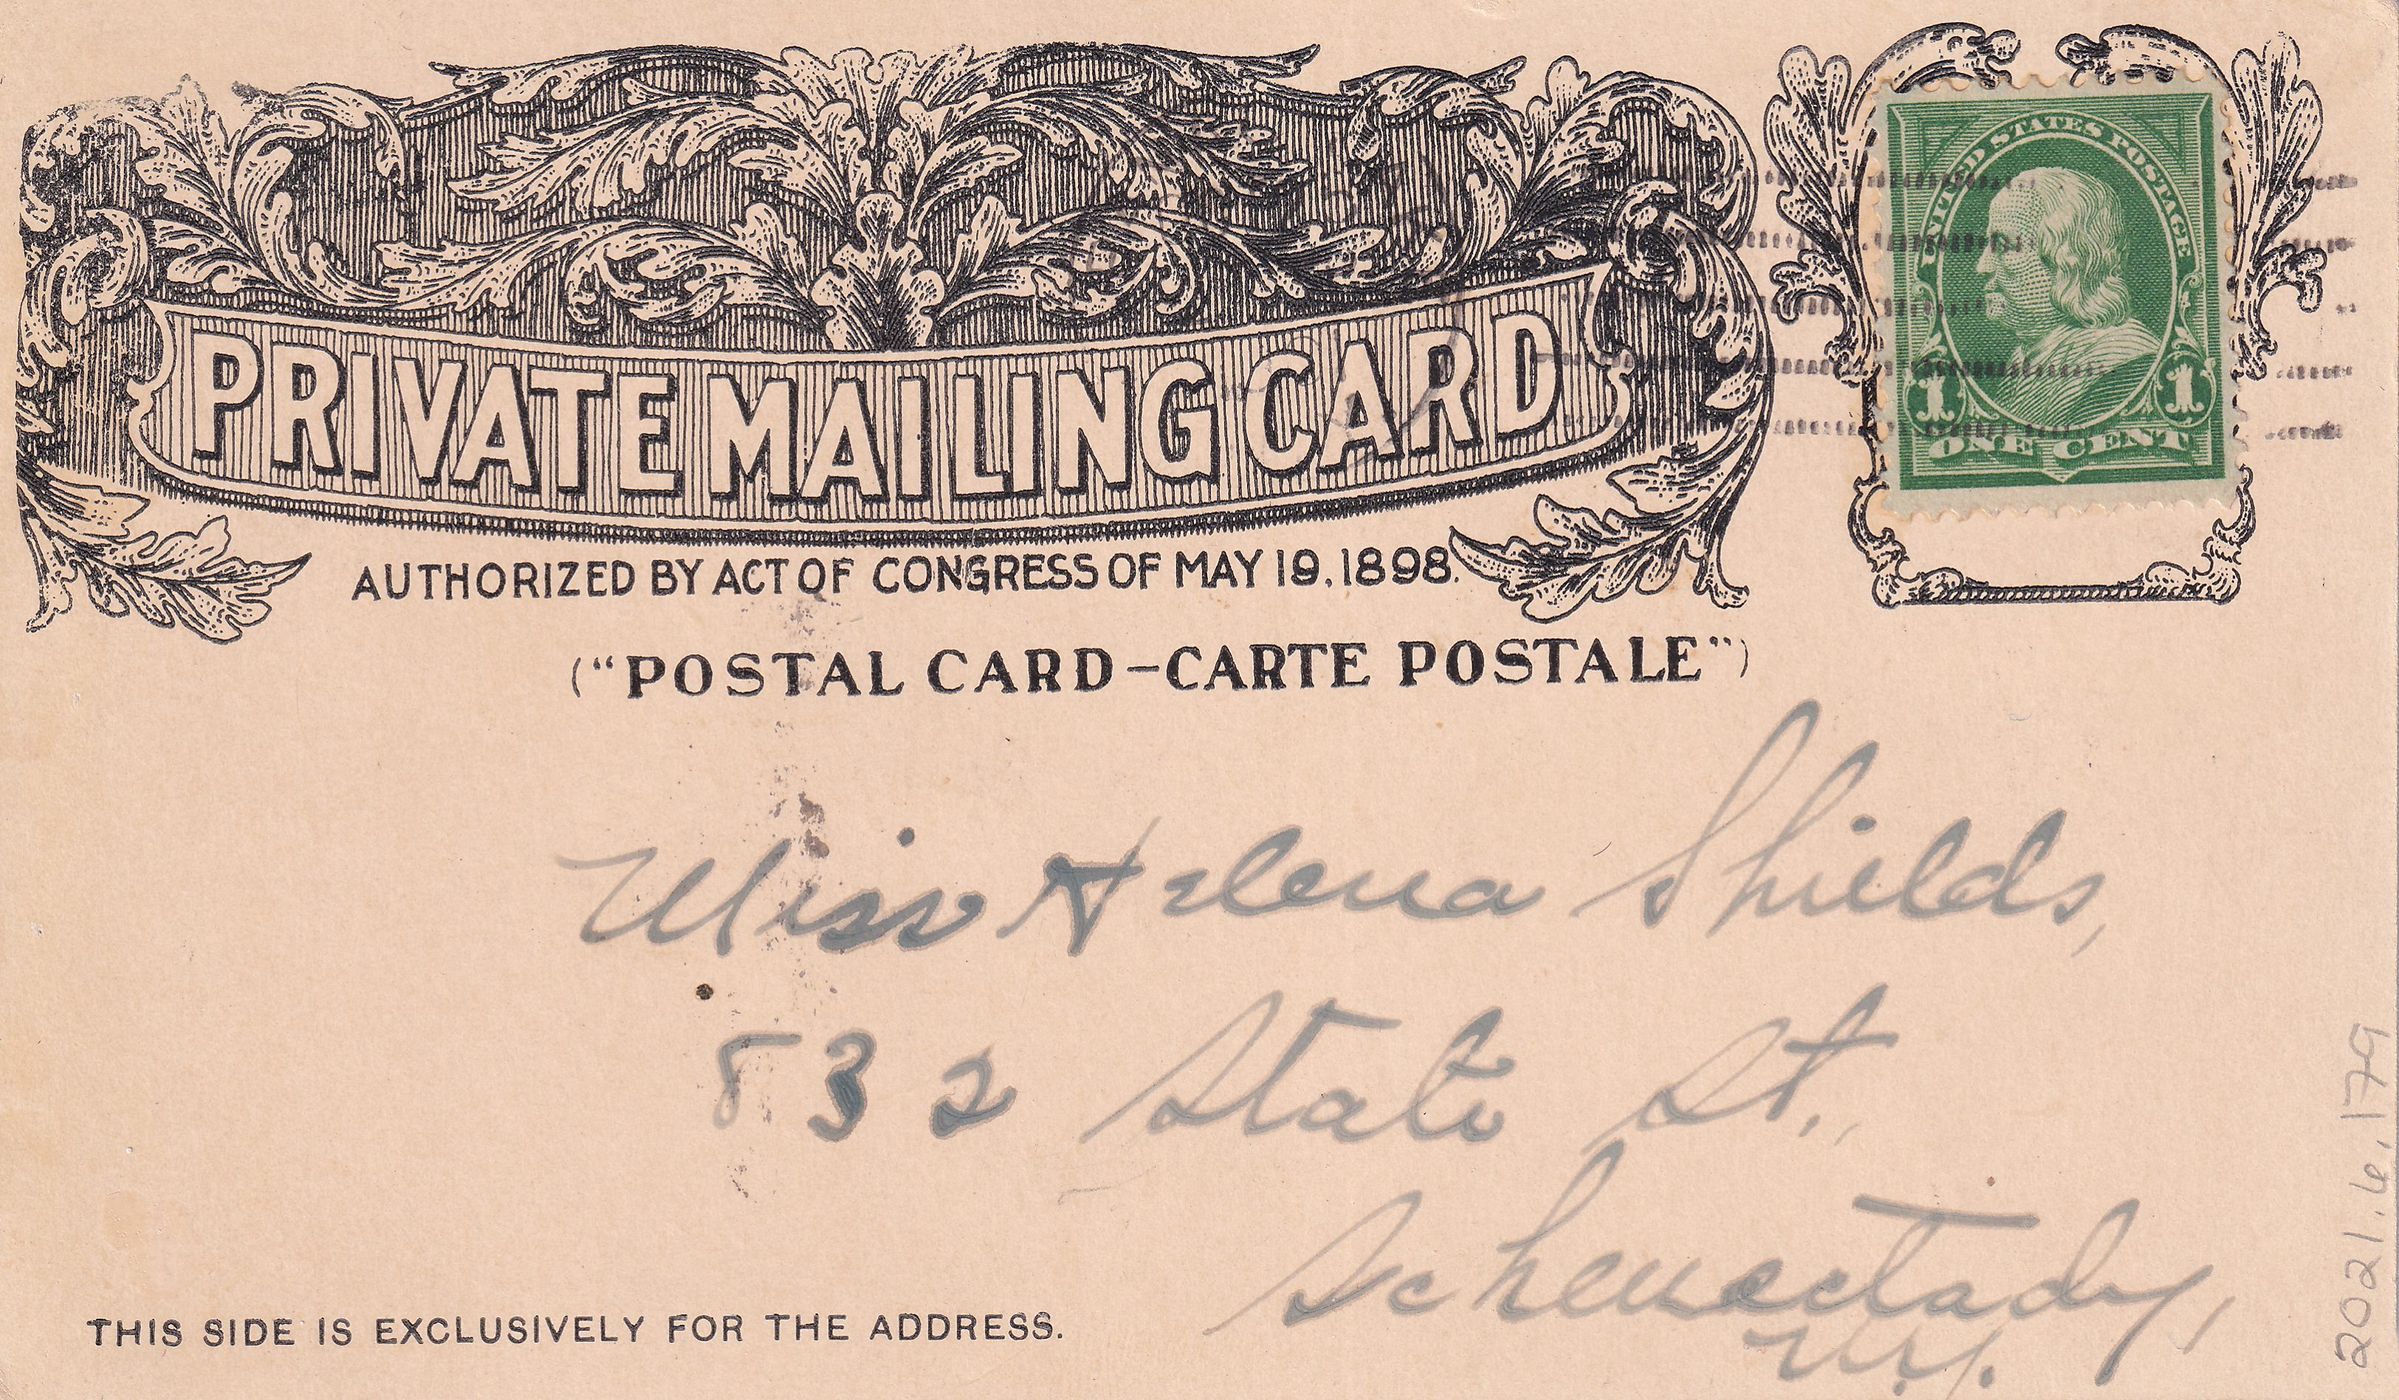 PRIVATE MAILING CARD
AUTHORIZED BY ACT OF CONGRESS OF MAY 19, 1898.
("POSTAL CARD–CARTE POSTALE")
UNITED STATES POSTAGE
1 1
ONE CENT
Miss Helena Shields,
832 State St.,
Schenectady,
N.Y.
THIS SIDE IS EXCLUSIVELY FOR THE ADDRESS.
2021.6.179